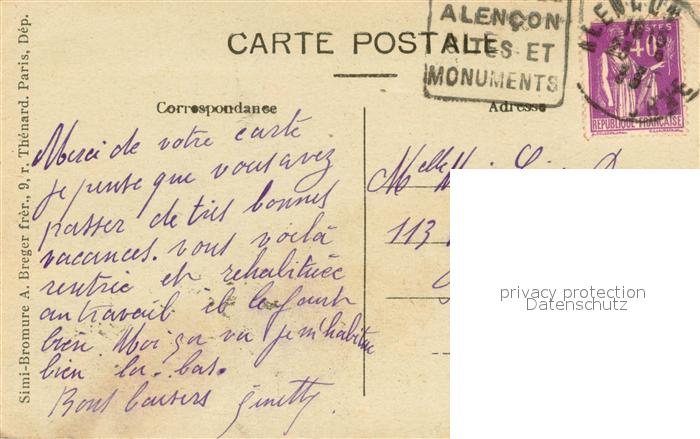 ALENÇON
CARTE POSTALE
ET
MONUMENTS
ALENÇON
POSTES
40
RÉPUBLIQUE FRANÇAISE
ORNE
Correspondance
Adresse
Merci de votre carte
je pense que vous avez
passer de très bonnes
vacances. vous voilà
rentrée et rehabituée
au travail il le faut
bien Moi ça va je m'habitue
bien la-bas.
Bons baisers Ginette
Melle
113
privacy protection
Datenschutz
Simi-Bromure A. Breger frèr., 9, r. Thénard. Paris, Dép.